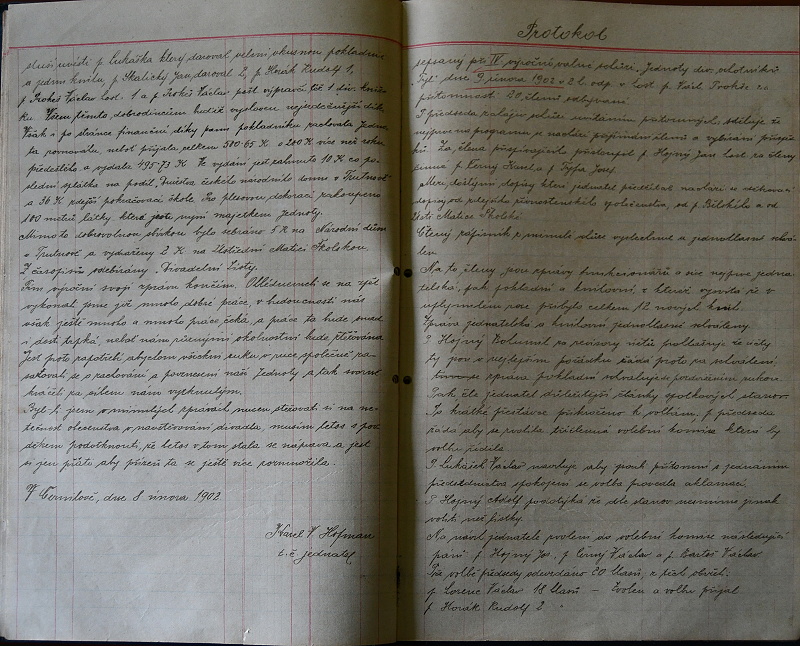 sluší uvésti p. Lukáška který daroval velmi vkusnou pokladnu
a jednu knihu, p. Skalický Jan, daroval 2, p. Horák Rudolf 1,
p. Prokeš Václav host. 1 a p. Prokeš Václav pošt. výpravčí též 1 div. knížku
ku. Všem těmto dobrodincům budiž vysloven nejsrdečnější dík.
Však i po stránce finanční díky panu pokladníku zachovala Jedno
ta rovnováhu, neboť přijala celkem 580·65 K. o 200 K více než roku
předešlého a vydala 495·73 K. Ve vydání jest zahrnuto 10 K co po
slední splátka na podíl Družstva českého národního domu v Trutnově
a 36 K zdejší pokračovací škole. Pro plesovou dekoraci zakoupeno
100 metrů látky, která jest nyní majetkem jednoty.
Mimo to dobrovolnou sbírkou bylo sebráno 5 K na Národní dům
v Trutnově a vydařeny 2 K na Ústřední Matici Školskou.
Z časopisů odebírány "Divadelní Listy.
Tím výroční svoji zprávu končím. Ohlédneme-li se na zpět
vykonali jsme již mnoho dobré práce, v budoucnosti nás
však ještě mnoho a mnoho práce čeká, a práce ta bude snad
i dosti trpká, neboť nám různými okolnostmi bude ztěžována
Jest proto zapotřebí abychom všichni ruku v ruce společně za
sazovali se o zachování a povznesení naší Jednoty a tak svorně
kráčeli za cílem nám vytknutým.
Byl-li jsem v minulých zprávách nucen stěžovati si na ne
tečnost obecenstva v navštěvování divadla, musím letos s po
děkem podotknouti, že letos v tom stala se náprava a jest
si jen přáti aby přízeň ta se ještě více rozmnožila.
V Černilově, dne 8 února 1902
Karel V. Hofman
t. č. jednatel
Protokol
sepsaný při IV. výročné valné schůzi Jednoty div. ochotníků
"Tyl" dne 9 února 1902 v 2 h. odp. v host. p. Václ. Prokše za
přítomnosti 20 členů odbývané.
P. předseda zahájiv schůzi uvítáním přítomných, sděluje že
nejprv na programu se nachází přijímání členů a vybírání příspěv
ků. Za člena přispívajícího přistoupil p. Hojný Jan host. za členy
činné p. Černý Karel a p. Tyfa Josef.
Mezi došlými dopisy které jednatel předčítal nachází se děkovací
dopis od zdejšího živnostenského společenstva, od p. Bělského a od
Ústř. Matice Školské.
Čtený zápisník z minulé schůze vyslechnut a jednohlasně schvá
len.
Na to čteny jsou zprávy funkcionářů a sice nejprve jedna
telská, pak pokladní a knihovní, z které vysvítá že v
uplynulém roce přibylo celkem 12 nových knih.
Zpráva jednatelská a knihovní jednohlasně schváleny.
P. Hojný Bohumil za revisory účtů prohlašuje že účty
ty jsou v nejlepším pořádku žádá proto za schválení
zpráva pokladní schvaluje se pozdvižením rukou.
Pak čte jednatel důležitější články spolkových stanov
Po krátké přestávce přikročeno k volbám, p. předseda
žádá aby se zvolila tříčlenná volební komise která by
volbu řídila.
P. Lukášek Václav navrhuje aby jsouli přítomní s jednáním
předsednictva spokojeni se volba provedla aklamací.
P. Hojný Adolf podotýká že dle stanov nesmíme jinak
voliti než lístky.
Na návrh jednatele zvoleni do volební komise následující
páni p. Hojný Jos., p. Černý Václav a p. Bartoš Václav.
Při volbě předsedy odevzdáno 20 hlasů, z nichž obdržel:
p. Lorenc Václav 18 hlasů – Zvolen a volbu přijal
p. Horák Rudolf 2 "